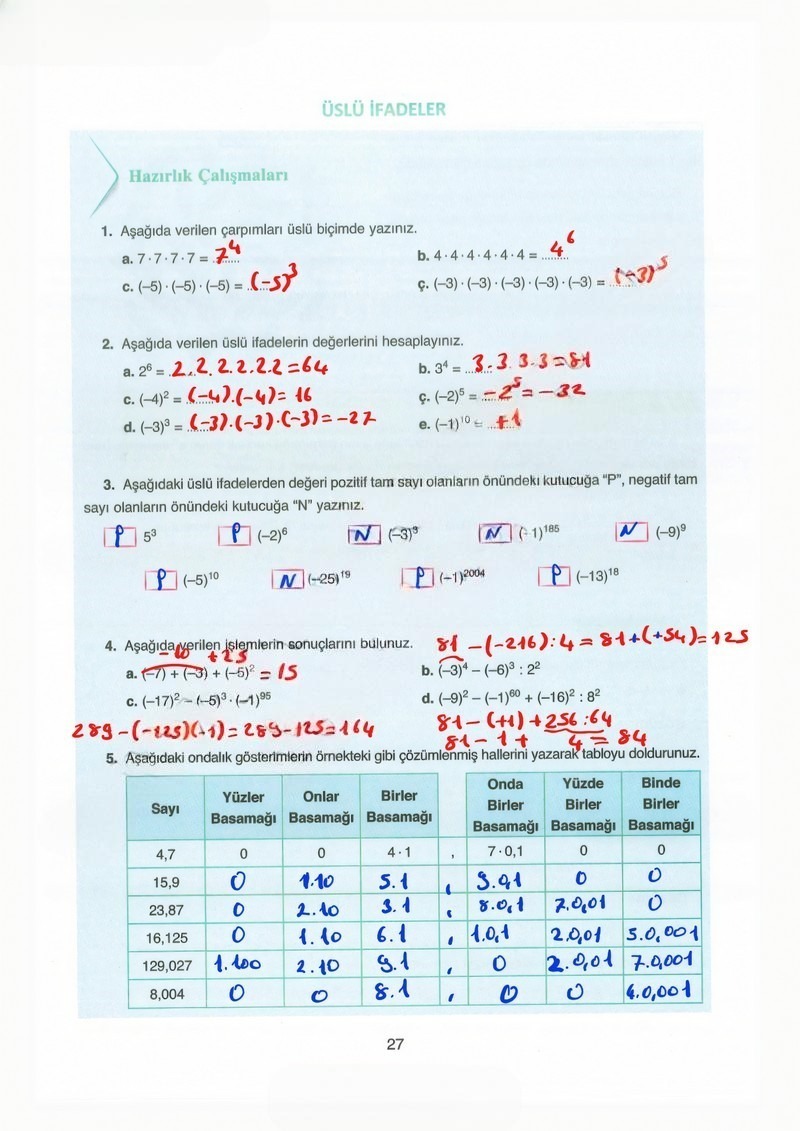 ÜSLÜ İFADELER
Hazırlık Çalışmaları
1. Aşağıda verilen çarpımları üslü biçimde yazınız.
a. 7 · 7 · 7 · 7 = 7⁴ b. 4 · 4 · 4 · 4 · 4 · 4 = 4⁶
c. (–5) · (–5) · (–5) = (-5)³ ç. (–3) · (–3) · (–3) · (–3) · (–3) = (-3)⁵
2. Aşağıda verilen üslü ifadelerin değerlerini hesaplayınız.
a. 2⁶ = 2.2.2.2.2.2 = 64 b. 3⁴ = 3.3.3.3 = 81
c. (–4)² = (-4).(-4) = 16 ç. (–2)⁵ = -2⁵ = -32
d. (–3)³ = (-3).(-3).(-3) = -27 e. (–1)¹⁰ = +1
3. Aşağıdaki üslü ifadelerden değeri pozitif tam sayı olanların önündeki kutucuğa “P”, negatif tam
sayı olanların önündeki kutucuğa “N” yazınız.
P 5³ P (–2)⁶ N (–3)³ N (–1)¹⁸⁵ N (–9)⁹
P (–5)¹⁰ N (–25)¹⁹ P (–1)²⁰⁰⁴ P (–13)¹⁸
4. Aşağıda verilen işlemlerin sonuçlarını bulunuz. 81 - (-216) : 4 = 81 + (+54) = 125
-10 +25
a. (–7) + (–3) + (–5)² = 15 b. (–3)⁴ – (–6)³ : 2²
c. (–17)² – (–5)³ · (–1)⁹⁵ d. (–9)² – (–1)⁶⁰ + (–16)² : 8²
289 - (-125)(-1) = 289 - 125 = 164 81 - (+1) + 256 : 64
81 - 1 + 4 = 84
5. Aşağıdaki ondalık gösterimlerin örnekteki gibi çözümlenmiş hallerini yazarak tabloyu doldurunuz.
Sayı Yüzler Basamağı Onlar Basamağı Birler Basamağı Onda Birler Basamağı Yüzde Birler Basamağı Binde Birler Basamağı
4,7 0 0 4 · 1 , 7 · 0,1 0 0
15,9 0 1.10 5.1 , 9.0,1 0 0
23,87 0 2.10 3.1 , 8.0,1 7.0,01 0
16,125 0 1.10 6.1 , 1.0,1 2.0,01 5.0,001
129,027 1.100 2.10 9.1 , 0 2.0,01 7.0,001
8,004 0 0 8.1 , 0 0 4.0,001
27